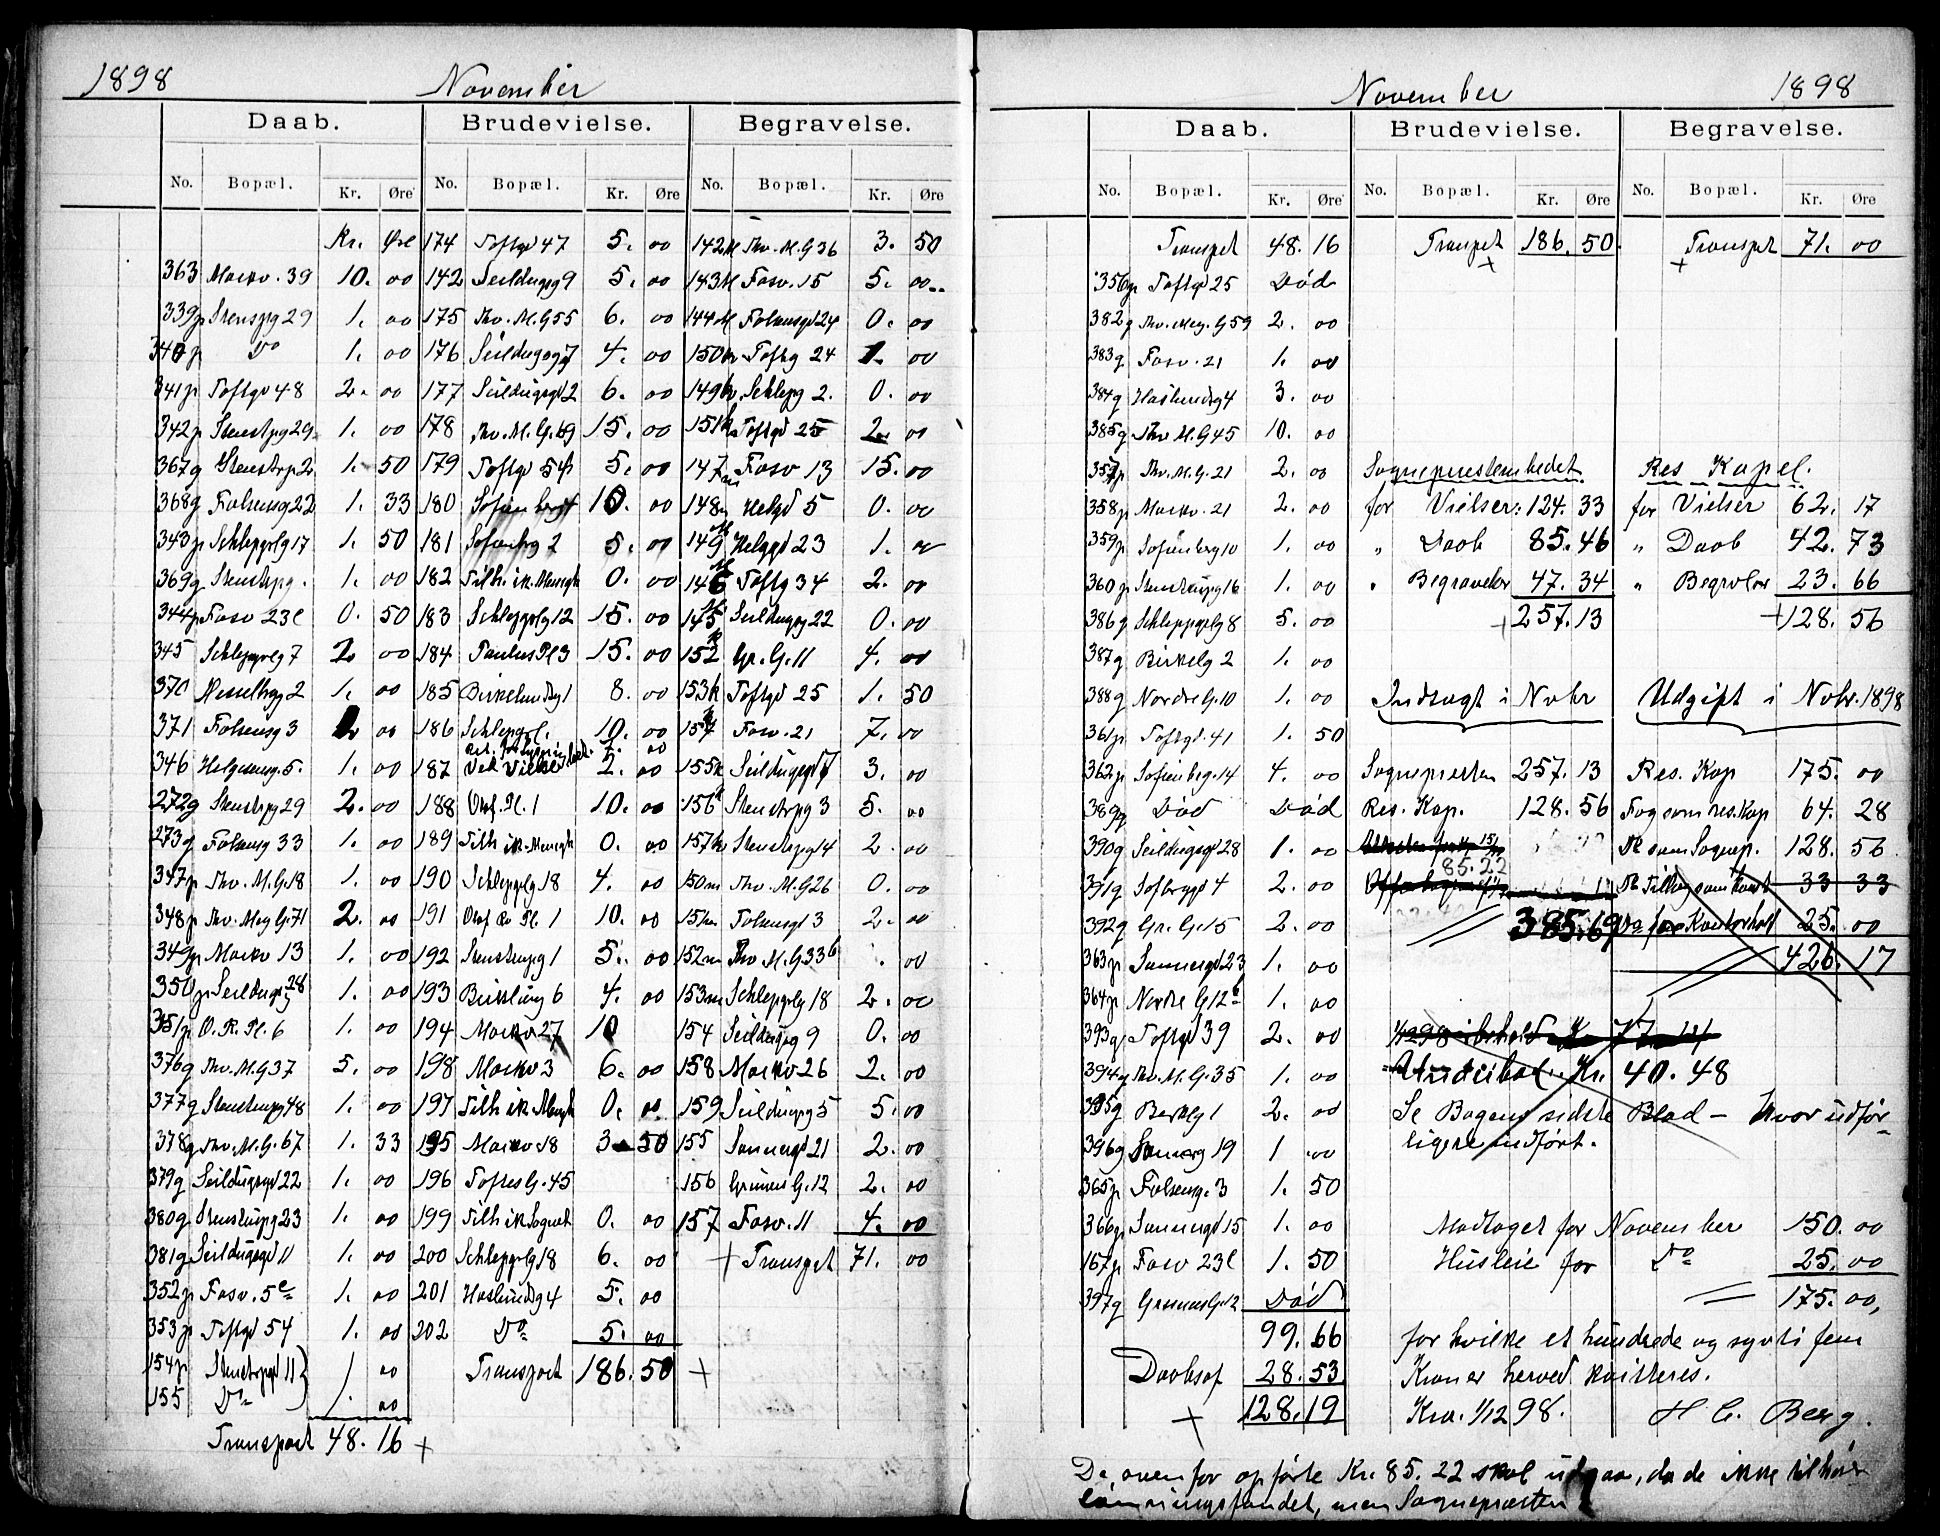 1898 November
Daab. Brudevielse. Begravelse.
No. Bopæl. Kr. Øre No. Bopæl. Kr. Øre No. Bopæl. Kr. Øre
Kr. Øre 174 Toftgd 47 5. 00 142 M Thv. M. G 36 3. 50
363 Markv. 39 10. 00 142 Seildugsg 9 5. 00 143 M Fosv. 15 5. 00
339 p Stenspg 29 1. 00 175 Thv. M. G 55 6. 00 144 M Falsensgd 24 0. 00
340 p Do 1. 00 176 Seildugsg 7 4. 00 150 k Toftg 24 1. 00
341 p Toftgd 48 2. 00 177 Seildugsgd 2 6. 00 149 k Schlepg 2. 0. 00
342 p Stenstpg 29 1. 00 178 Thv. M. G. 69 15. 00 151 k Toftgd 25 2. 00
367 g Stenstrp 2 1. 50 179 Toftgd 54 5. 00 147 m Fosv 13 15. 00
368 g Falsensg 22 1. 33 180 Sofienberg 10. 00 148 m Helgd 5 0. 00
343 p Schleppglg 17 1. 50 181 Sofienbrg 2 5. 00 149 M Helggd 23 1. 00
369 g Stenstrpg. 1. 00 182 Tilh. ik. Menigh 0. 00 146 M Toftg 34 2. 00
344 p Fosv 23 c 0. 50 183 Schleppglg 12 15. 00 145 M Seildugsg 22 0. 00
345 Schleppglg 7 2 00 184 Paulus Pl 3 15. 00 152 k Gr. G. 11 4. 00
370 Hesselbgg 2 1. 00 185 Birkelundsg 1 8. 00 153 k Toftgd 25 1. 50
371 Falsensg 3 00 186 Schleppgl. 10. 00 154 k Fosv. 21 7. 00
346 Helgesensg. 5. 1. 00 187 Ved Vielse 2. 00 155 k Seildugsgd 7 3. 00
272 g Stenstpg 29 2. 00 188 Olaf. Pl. 1 10. 00 156 k Stenstrpg 3 5. 00
273 g Falsensg 33 1. 00 189 Tilh ik. Menigh 0. 00 157 k Stenstrpg 14 2. 00
347 p Thv. M. G. 18 1. 00 190 Schleppglg 18 4. 00 150 m Thv. M. G 26 0. 00
348 p Thv. Mey G. 71 2. 00 191 Olaf Rs Pl. 1 10. 00 151 m Falsensgd 3 2. 00
349 p Markv 13 1. 00 192 Stenstrupg 1 5. 00 152 m Thv M. G 33 b . 00
350 p Seildugsg 28 1. 00 193 Birkelung 6 4. 00 153 m Schleppglg 18 2. 00
351 p O. R. Pl. 6 1. 00 194 Markv 27 10 154 Seildugsg 9 0. 00
376 g Thv. M. G 37 5. 00 198 Markv 3 6. 00 158 Markv 26 2. 00
377 g Stenstrupg 48 1. 00 197 Tilh ik. Menigh 0. 00 159 Seildugsg 5 5. 00
378 g Thv. M. G. 67 1. 33 195 Markv 18 3 50 155 Sannergd 21 2. 00
379 g Seildugsgd 22 1. 00 196 Toftes G. 45 156 Grüners G. 12 2. 00
380 g Stenstrupg 23 1. 00 199 Tilh ik Sognet 0. 00 157 Fosv. 11 4. 00
381 g Seildugsgd 11 1. 00 200 Schleppglg 18 6. 00 + Transpot 71. 00
352 p Fosv. 5 c 1. 00 201 Haslundsg 4 5. 00
353 p Toftgd 54 1. 00 202 Do 5. 00
154 p Stenstrpgd 11 1 00 Transport 186. 50 +
155 Do 1. 00
Transport 48. 16 +
November 1898
Daab. Brudevielse. Begravelse.
No. Bopæl. Kr. Øre No. Bopæl. Kr. Øre No. Bopæl. Kr. Øre
Transpot 48. 16 Transpot 186. 50. Transpot 71. 00
356 p Toftgd 25 Død
382 g Thv. Mey. G 59 2. 00
383 g Fosv. 21 1. 00
384 g Haslundsg 4 3. 00
385 g Thv M. G 45 10. 00
357 p Thv. M. G. 21 2. 00 Sogneprestembedet Res. Kapel.
358 p Markv. 21 2. 00 for Vielser: 124. 33 for Vielser 62. 17
359 p Sofienberg 10 1. 00 " Daab 85. 46 " Daab 42. 73
360 p Stenstrupg 16 1. 00 " Begravelser 47. 34 " Begravlser 23. 66
386 g Schleppglg 8 5. 00 + 257. 13 + 128. 56
387 g Birkelg 2 1. 00
388 g Nordre G. 10 1. 00 Indtægt i Novbr Udgift i Novbr. 1898
361 p Toftgd. 41 1. 50
362 p Sofienbrg. 14 4. 00 Sognepresten 257. 13 Res. Kap 175. 00
389 p Død Død Res. Kap. 128. 56 Fag som res. Kap 64. 28
390 g Seildugsgd 28 1. 00 Dk som Sognep. 128. 56
391 g Sofbrggd 4 2. 00 85. 22 33 33
392 g Gr. G. 15 2. 00 385. 69 Do for Kontorhold 25. 00
363 p Sannergd 23 1. 00 426. 17
364 p Nordre G 12 b 1. 00
393 g Toftgd 39 2. 00 77. 14
394 g Thv. M. G. 35 1. 00 Underbal. Kr. 40. 48
395 g Barkeg 1 2. 00 Se Bogens sidste Blad – hvor udfør-
396 g Sannerg 19 1 00 ligere indført.
365 p Falsensg. 3 1. 50
366 p Sannergd 15 1. 00 Modtaget for November 150. 00
167 p Fosv 23 c 1. 50 Husleie for Do 25. 00
397 g Grüners G. 12 Død 175. 00,
99. 66 for hvilke et hundrede og sytti fem
Daabsaf 28. 53 Kroner herved kvitteres.
+ 128. 19 Kra. 1/12 98. H C. Berg.
De ovenfor opførte Kr. 85. 22 skal udgaa, da de ikke tilhører
lønningsfondet, men Sognepresten